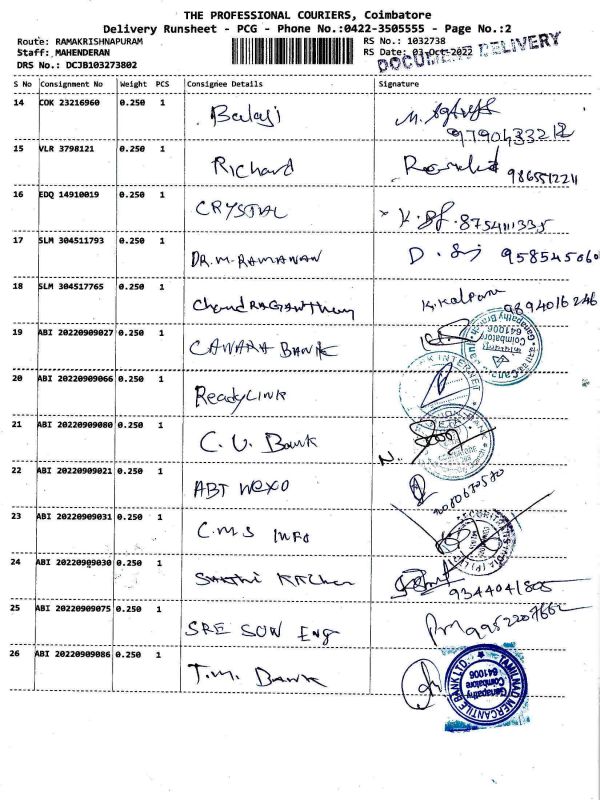 THE PROFESSIONAL COURIERS, Coimbatore
Delivery Runsheet - PCG - Phone No.:0422-3505555 - Page No.:2
Route: RAMAKRISHNAPURAM RS No.: 1032738
Staff: MAHENDERAN RS Date: 03-Oct-2022
DOCUMENT DELIVERY
DRS No.: DCJB103273802
S No Consignment No Weight PCS Consignee Details Signature
14 COK 23216960 0.250 1 Balaji
9790433212
15 VLR 3798121 0.250 1 Richard 9865512211
16 EDQ 14910019 0.250 1 CRYSTAL 8754111335
17 SLM 304511793 0.250 1 DR.M.RAMANAN 958545060
18 SLM 304517765 0.250 1 K.Kalpana 9894016246
19 ABI 20220909027 0.250 1 CANARA BANK
Ganapathy Branch Coimbatore 641006
20 ABI 20220909066 0.250 1 ReadyLink
21 ABI 20220909080 0.250 1 C.U. Bank
22 ABI 20220909021 0.250 1 ABT
23 ABI 20220909031 0.250 1 C.M.S INFO
24 ABI 20220909030 0.250 1
9344041805
25 ABI 20220909075 0.250 1 SRE SOW Eng
26 ABI 20220909086 0.250 1 T.M. Bank
TAMILNAD MERCANTILE BANK LTD. Ganapathy Coimbatore 641006